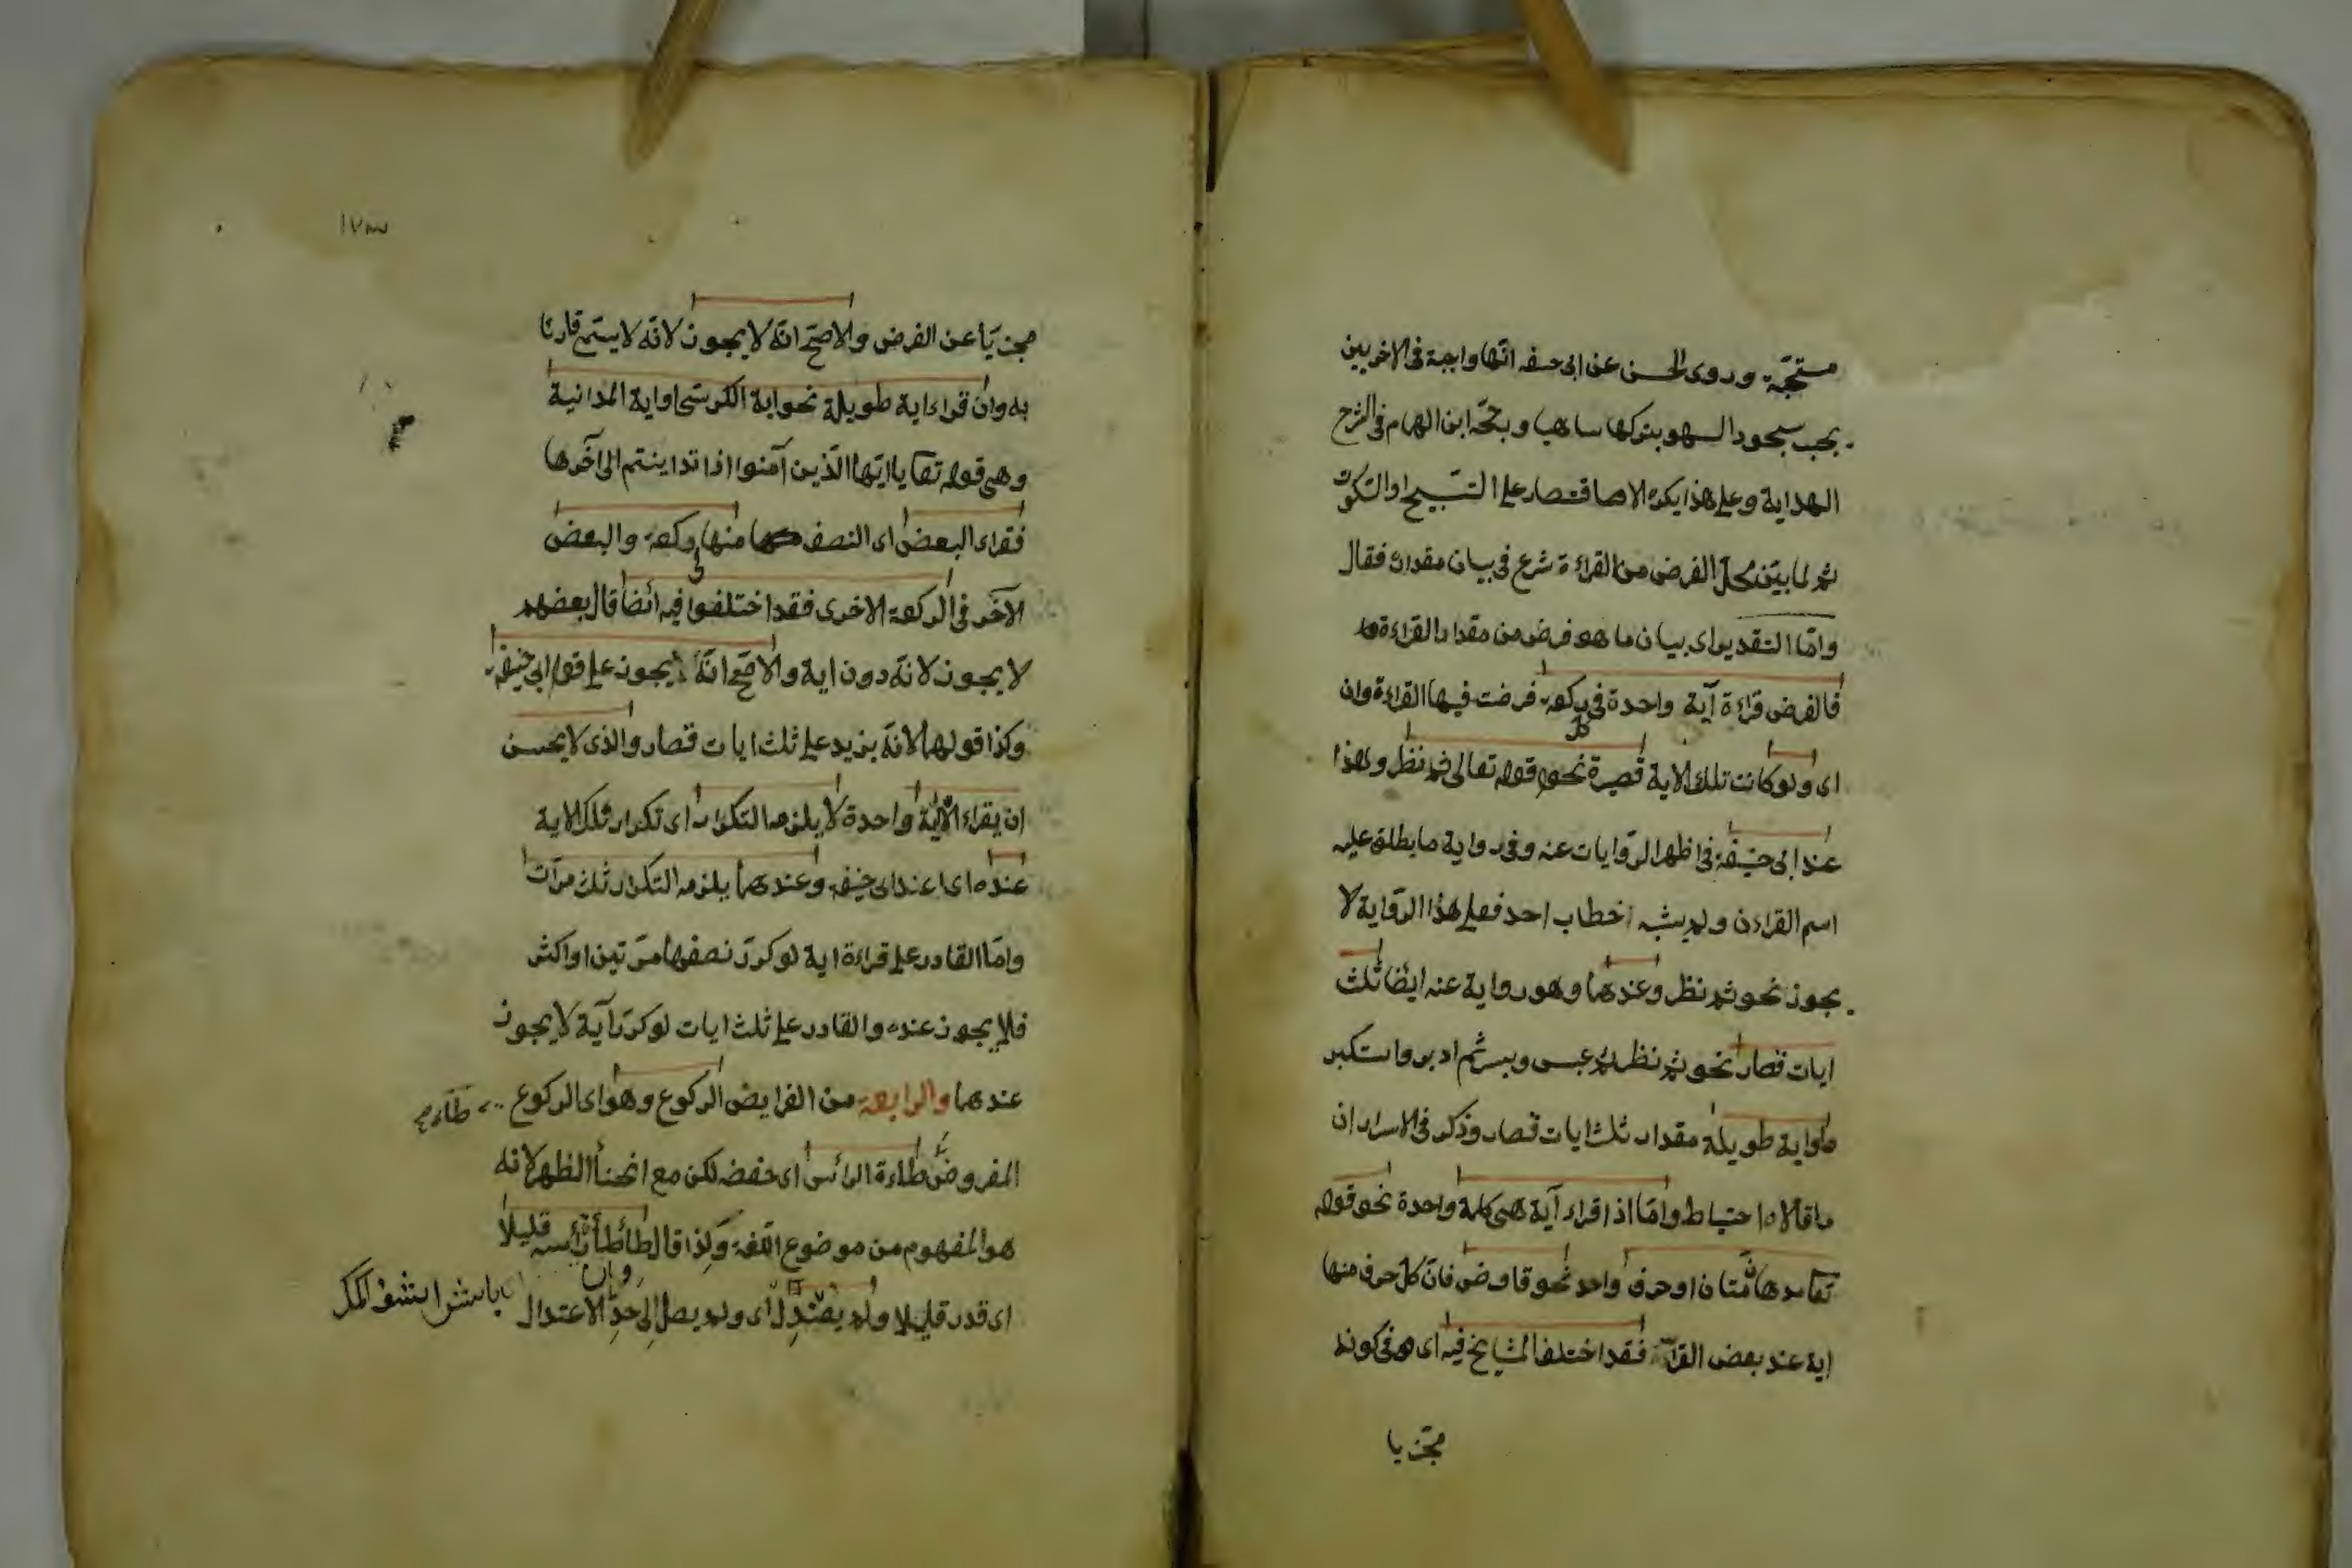 مستحبّة وروى الحسن عن ابى حنيفه انّها واجبة فى الاخريين
يجب سجود السهو بتركها ساهيا ورجّحه ابن الهمام فى شرح
الهداية وعلى هذا يكره الاقتصار على التسبيح او السكوت
ثم لما بيّن محلّ الفرض من القراءة شرع فى بيان مقداره فقال
وامّا التقدير اى بيان ما هو فرض من مقدار القراءة
فالفرض قراءة آية واحدة فى كل ركعة فرضت فيها القراءة وان
اى ولو كانت تلك الاية قصيرة نحو قوله تعالى ثم نظر وهذا
عند ابى حنيفة فى اظهر الرّوايات عنه وفى رواية ما يطلق عليه
اسم القراءن ولم يشبه خطاب احد فعلى هذا الرّواية لا
يجوز نحو ثم نظر وعندهما وهو رواية عنه ايضا ثلث
ايات قصار نحو ثم نظر ثم عبس وبسر ثم ادبر واستكبر
او اية طويلة مقدار ثلث ايات قصار وذكر فى الاسرار ان
ما قالاه احتياط وامّا اذا قراء آية هى كلمة واحدة نحو قوله
تعا مدهامّتان او حرف واحد نحو قاف ص فانّ كلّ حرف منها
اية عند بعض القرّاء فقد اختلف المشايخ فيه اى فى كونه
مجزيا
١٧٣
مجزيّا عن الفرض والاصحّ انّه لا يجوز لانّه لا يسمّى قارئا
به وان قراء اية طويلة نحو اية الكرسى او اية المداينة
وهى قوله تعا يا ايّها الّذين آمنوا اذا تداينتم الى آخرها
فقراء البعض اى النصف منها فى ركعة والبعض
الآخر فى الركعة الاخرى فقد اختلفوا فيه ايضا قال بعضهم
لا يجوز لانّه دون اية والاصحّ انّه يجوز على قول ابى حنيفة
وكذا قولهما لانّه يزيد على ثلث ايات قصار والذى لا يحسن
ان يقراء الّا اية واحدة لا يلزمه التكرار اى تكرار تلك الاية
عنده اى عند ابى حنيفة وعندهما يلزمه التكرار ثلث مرّات
وامّا القادر على قراءة اية لو كرّر نصفها مرّتين او اكثر
فلا يجوز عنده والقادر على ثلث ايات لو كرّر آية لا يجوز
عندهما والرابعة من الفرايض الركوع وهو اى الركوع
المفروض طاءطاءة الرأس اى خفضه لكن مع انحناء الظهر لانه
هو المفهوم من موضوع اللّغة ولذا قال طأطأ رأسه قليلا
اى قدر قليلا ولم يعتدل اى ولم يصل الى حدّ الاعتدال
وان